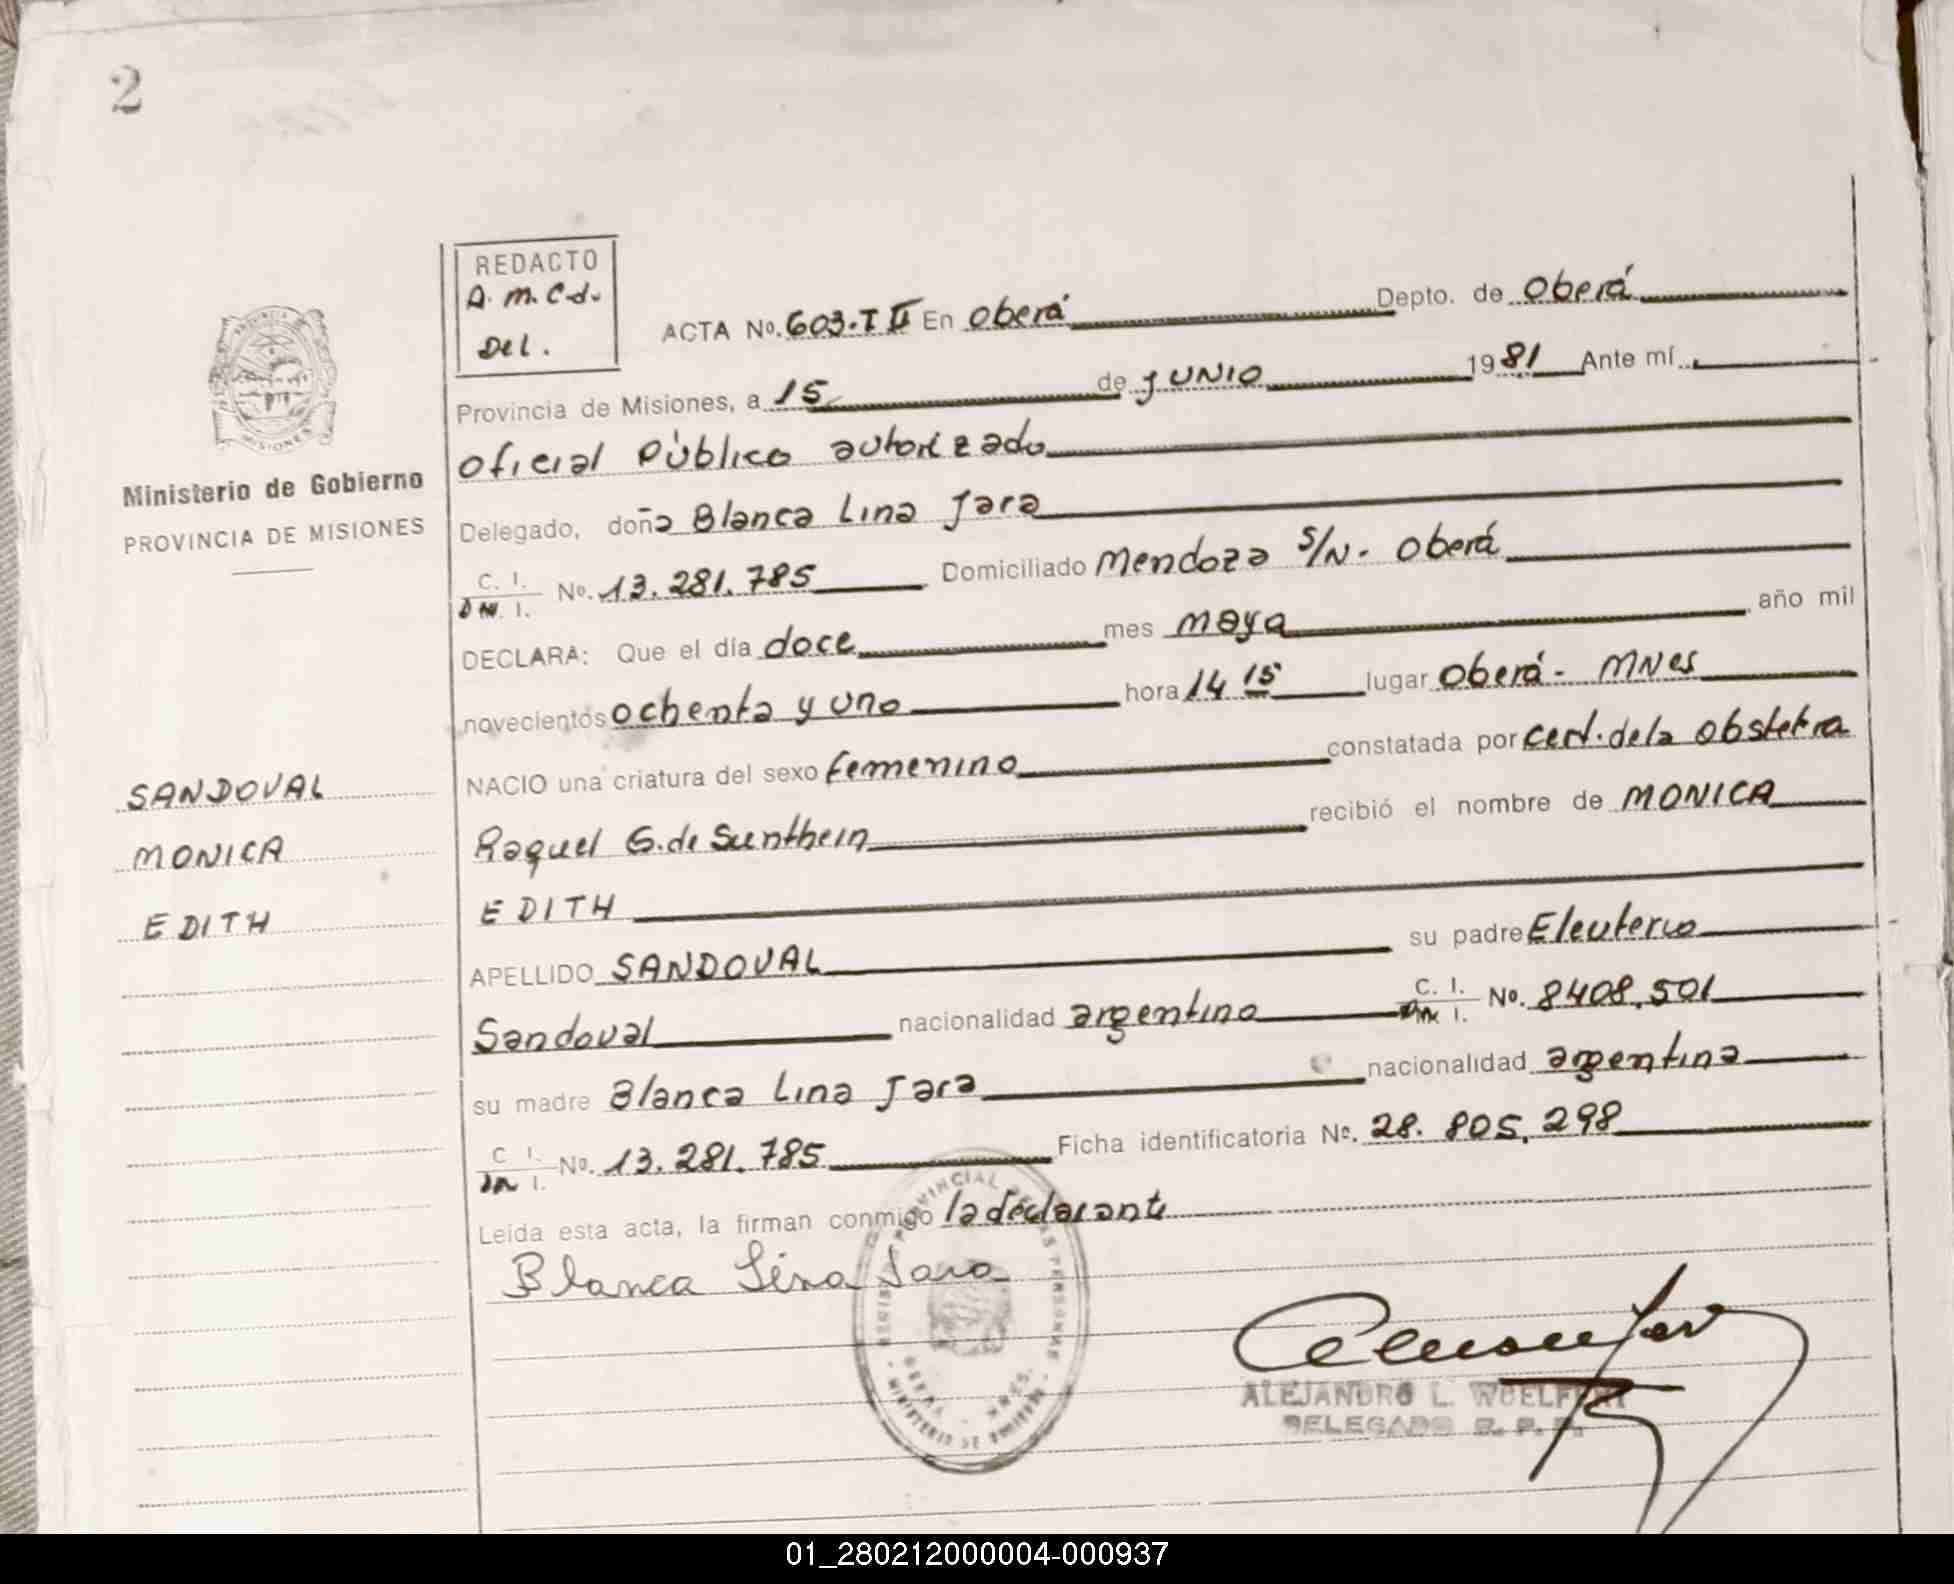 2
REDACTO
A. M. C. d.
Del.
ACTA No. 603.T II En Oberá Depto. de Oberá
Provincia de Misiones, a 15 de JUNIO 1981 Ante mí
Oficial Público autorizado
Delegado, doña Blanca Lina Jara
C. I.
DN. I. No. 13.281.785 Domiciliado Mendoza S/N - Oberá
DECLARA: Que el día doce mes mayo año mil
novecientos ochenta y uno hora 14 15 lugar Oberá - MNes
NACIO una criatura del sexo femenino constatada por cert. de la obstetra
Raquel G. de Sunthein recibió el nombre de MONICA
EDITH
APELLIDO SANDOVAL su padre Eleuterio
Sandoval nacionalidad argentino C. I.
DN I. No. 8408.501
su madre Blanca Lina Jara nacionalidad argentina
C I.
DN I. No. 13.281.785 Ficha identificatoria No. 28.805.298
Leída esta acta, la firman conmigo la declarante
Blanca Lina Jara
Ministerio de Gobierno
PROVINCIA DE MISIONES
SANDOVAL
MONICA
EDITH
REGISTRO PROVINCIAL DE LAS PERSONAS
ALEJANDRO L.
DELEGADO R. P. P.
01_280212000004-000937